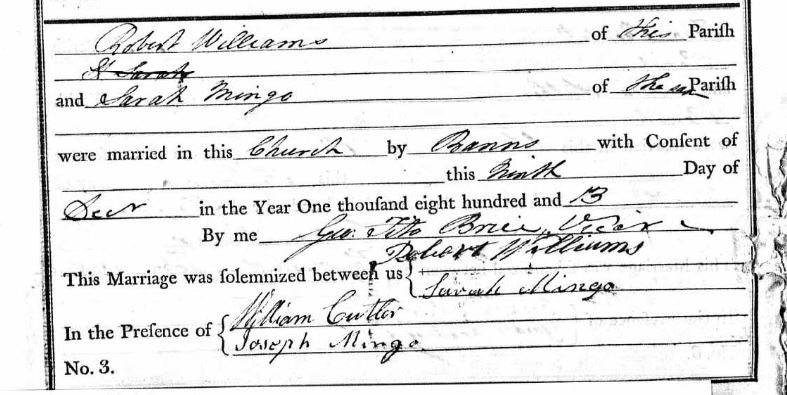 Robert Williams of this Parish
& Sarah
and Sarah Mingo of the same Parish
were married in this Church by Banns with Consent of
this Ninth Day of
in the Year One thousand eight hundred and 13
By me Geo. Tito Brice Vicar
Robert Williams
This Marriage was solemnized between us
Sarah Mingo
William Cutler
In the Presence of
Joseph Mingo
No. 3.